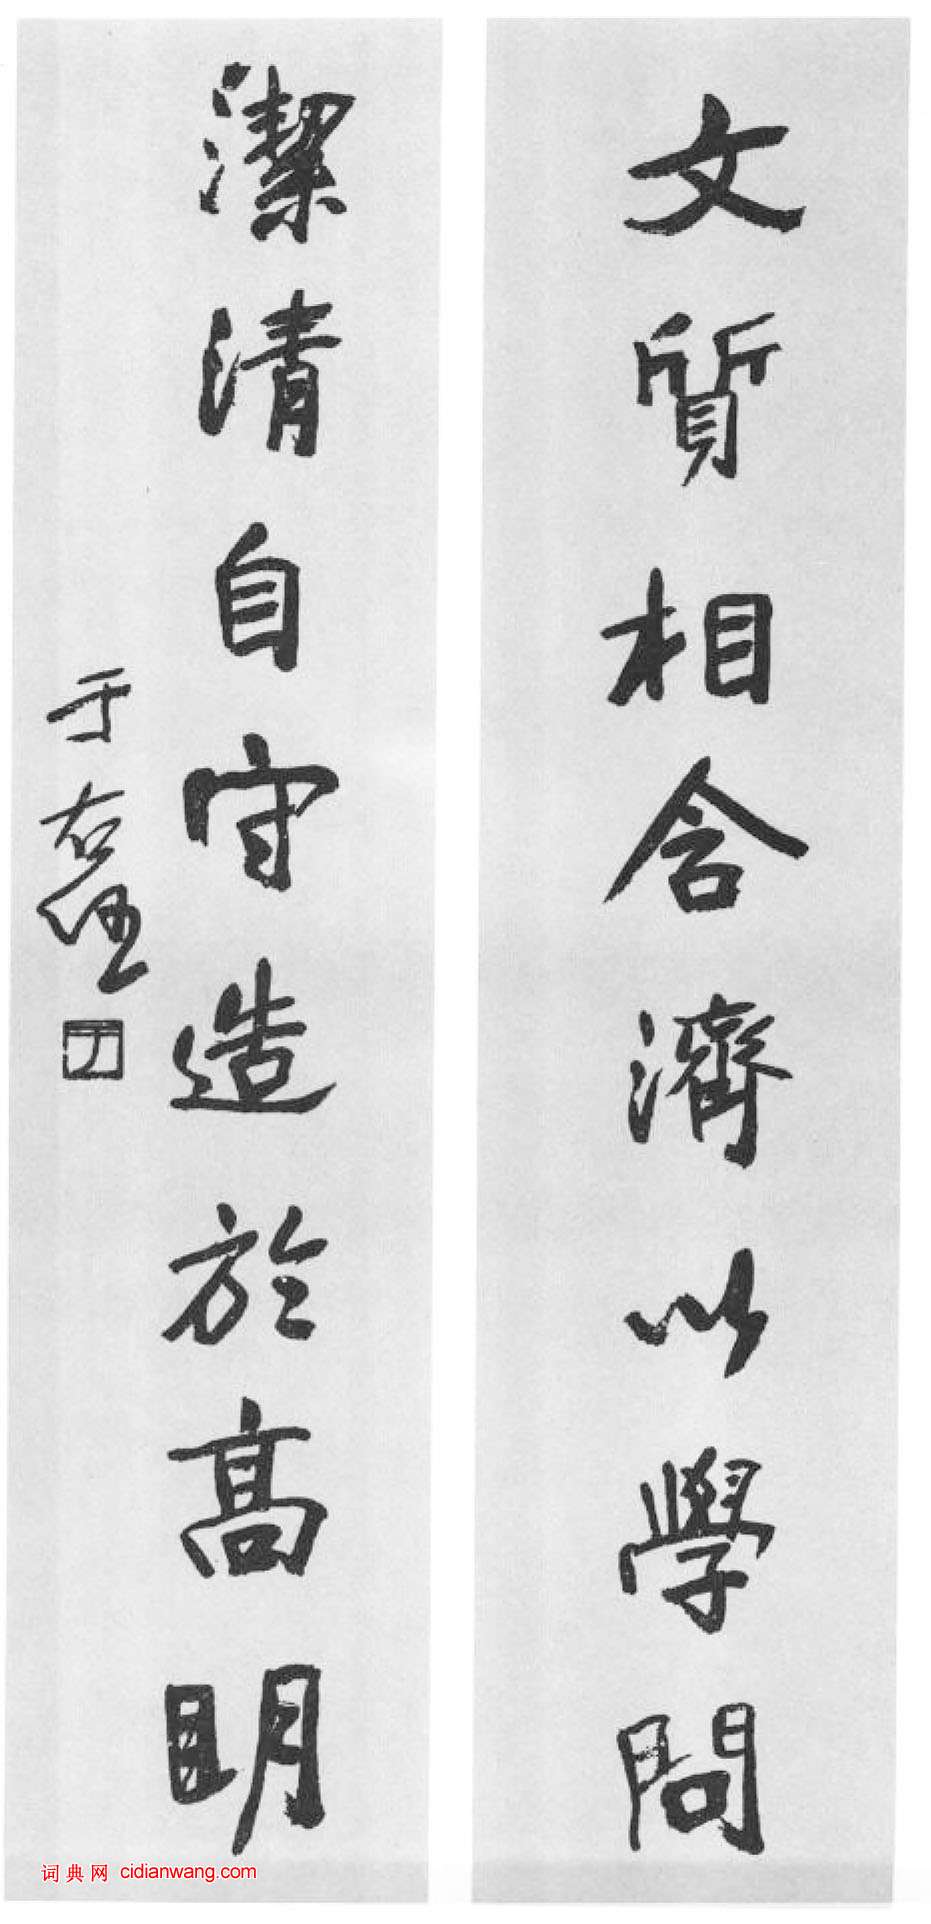 文質相含濟以學問
潔清自守造於高明
于右任
于
词典网 cidianwang.com